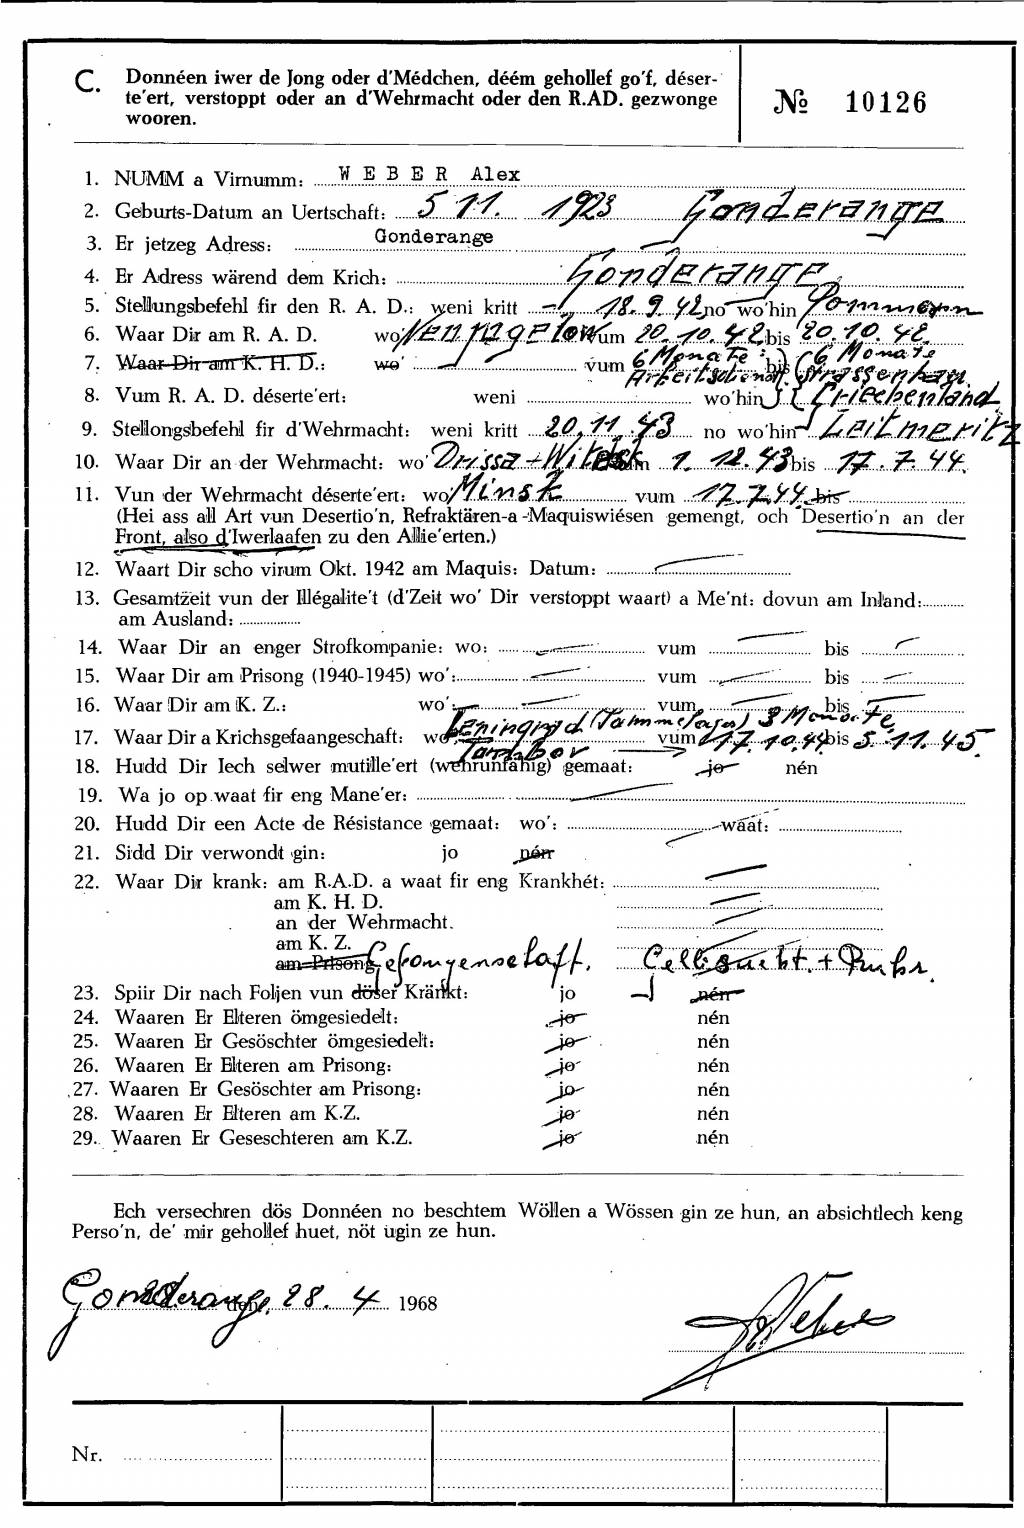 C. Donnéen iwer de Jong oder d'Médchen, déém gehollef go'f, déser-
te'ert, verstoppt oder an d'Wehrmacht oder den R.AD. gezwonge
wooren.
№ 10126
1. NUMM a Virnumm: WEBER Alex
2. Geburts-Datum an Uertschaft: 5 11. 1923 Gonderange
3. Er jetzeg Adress: Gonderange
4. Er Adress wärend dem Krich: Gonderange
5. Stellungsbefehl fir den R. A. D.: weni kritt 18. 9. 42 no wo'hin Pommern
6. Waar Dir am R. A. D. wo' vum 20. 10. 42 bis 20. 10. 42.
7. Waar Dir am K. H. D.: wo' vum 6 Monate bis 6 Monate
Arbeitsdienst. Strassenbau
8. Vum R. A. D. déserte'ert: weni wo'hin Griechenland
9. Stellongsbefehl fir d'Wehrmacht: weni kritt 20. 11. 43 no wo'hin Leitmeritz
10. Waar Dir an der Wehrmacht: wo' Drissa + Witebsk vum 1. 12. 43 bis 17. 7. 44.
11. Vun der Wehrmacht déserte'ert: wo' Minsk vum 17. 7. 44 bis
(Hei ass all Art vun Desertio'n, Refraktären-a-Maquiswiésen gemengt, och Desertio'n an der
Front, also d'Iwerlaafen zu den Allie'erten.)
12. Waart Dir scho virum Okt. 1942 am Maquis: Datum:
13. Gesamtzeit vun der Illégalite't (d'Zeit wo' Dir verstoppt waart) a Me'nt: dovun am Inland:
am Ausland:
14. Waar Dir an enger Strofkompanie: wo: vum bis
15. Waar Dir am Prison (1940-1945) wo': vum bis
16. Waar Dir am K. Z.: wo': vum bis
Leningrad 3 Monate
17. Waar Dir a Krichsgefaangeschaft: wo' Tambov vum 17. 10. 44 bis 5. 11. 45.
18. Hudd Dir Iech selwer mutille'ert (wehrunfähig) gemaat: jo nén
19. Wa jo op waat fir eng Mane'er:
20. Hudd Dir een Acte de Résistance gemaat: wo': waat:
21. Sidd Dir verwondt gin: jo nén
22. Waar Dir krank: am R.A.D. a waat fir eng Krankhét:
am K. H. D.
an der Wehrmacht.
am K. Z.
am Prison, Gefangenschaft. Gelbsucht. + Ruhr.
23. Spiir Dir nach Foljen vun döser Kränkt: jo nén
24. Waaren Er Elteren ömgesiedelt: jo nén
25. Waaren Er Gesöschter ömgesiedelt: jo nén
26. Waaren Er Elteren am Prison: jo nén
27. Waaren Er Gesöschter am Prison: jo nén
28. Waaren Er Elteren am K.Z. jo nén
29. Waaren Er Geseschteren am K.Z. jo nén
Ech versechren dös Donnéen no beschtem Wöllen a Wössen gin ze hun, an absichtlech keng
Perso'n, de' mir gehollef huet, nöt ugin ze hun.
Gonderange, den 28. 4 1968
Weber
Nr.